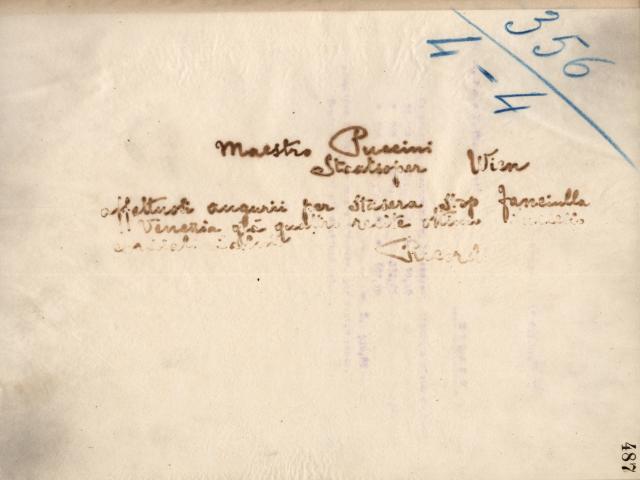 356
4-4
Maestro Puccini
Staatsoper Wien
affettuosi augurii per stasera Stop fanciulla
Venezia già quattro recite ottimo
Ricordi
487